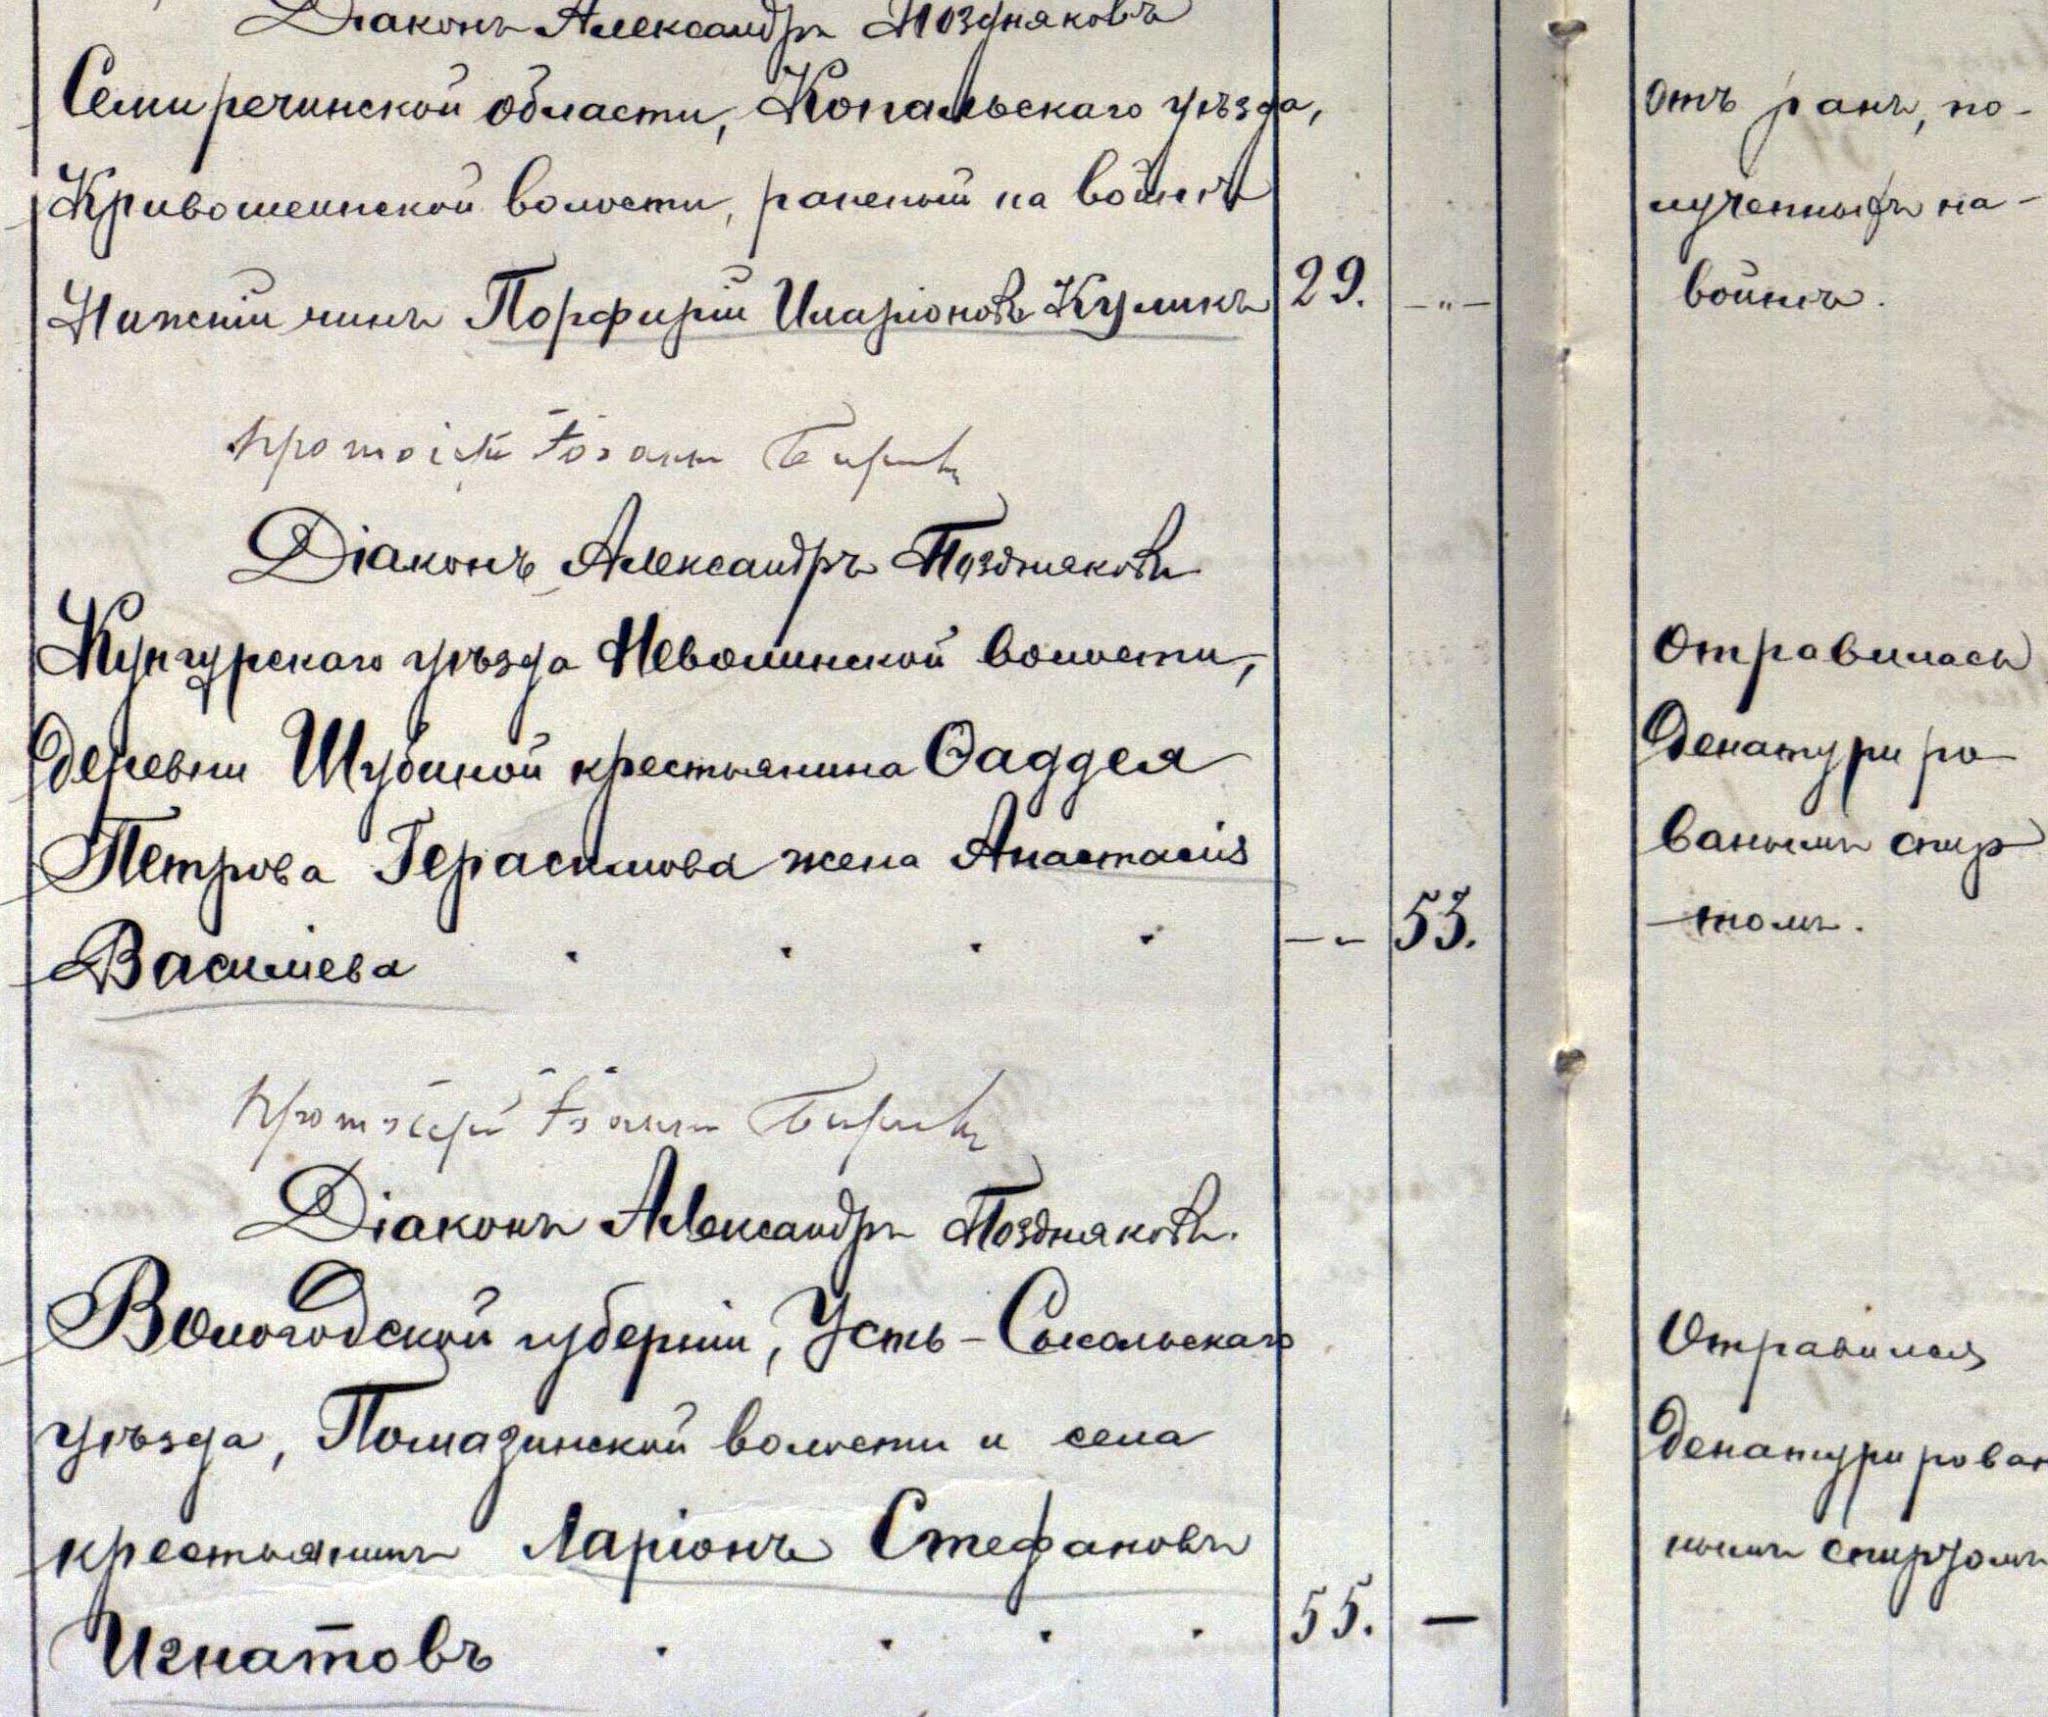 Діаконъ Александръ Поздняковъ
Семиреченской области, Копальскаго уѣзда,
Кривошеинской волости, раненый на войнѣ
Нижній чинъ Порфирій Иларіоновъ Куликъ
29.
-„-
отъ ранъ, по-
лученныхъ на-
войнѣ.
Іоаннъ
Діаконъ Александръ Поздняковъ
Кунгурскаго уѣзда Неволинской волости,
деревни Шубиной крестьянина Ѳаддея
Петрова Герасимова жена Анастасія
Васильева . . . .
-„-
53.
Отравилась
денатуриро
ванымъ спир
томъ.
Протоіерей Іоаннъ
Діаконъ Александръ Поздняковъ.
Вологодской губерніи, Усть-Сысольскаго
уѣзда, Помаздинской волости и села
крестьянинъ Ларіонъ Стефановъ
Игнатовъ . . . .
55.
—
Отравился
денатурирован
нымъ спиртомъ